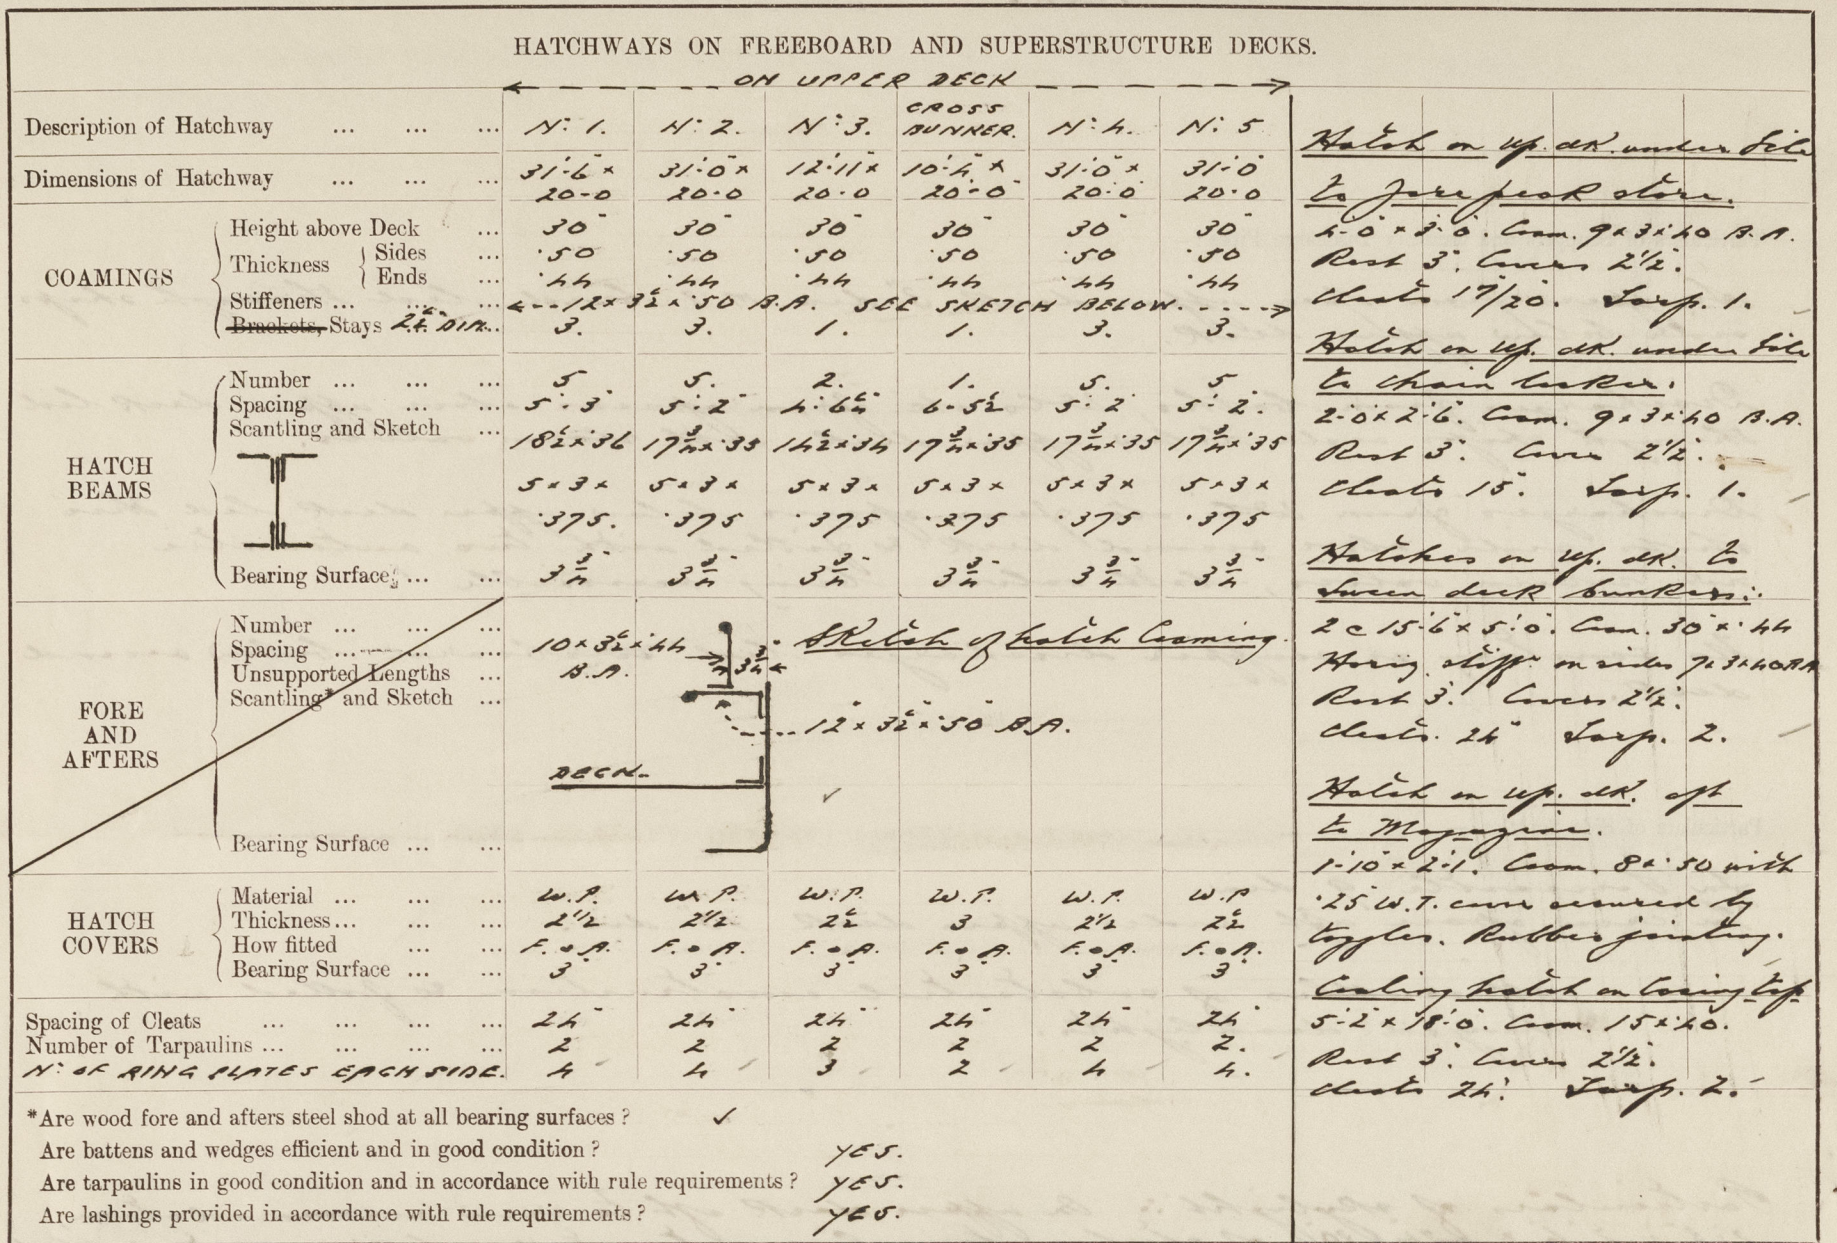 HATCHWAYS ON FREEBOARD AND SUPERSTRUCTURE DECKS.
ON UPPER DECK
Description of Hatchway ... ... ... Nº 1. Nº 2. Nº 3. CROSS BUNKER. Nº 4. Nº 5
Dimensions of Hatchway ... ... ... 31'-6" × 20-0 31'-0" × 20-0 12'-11" × 20-0 10'-4" × 20-0 31'-0" × 20-0 31'-0 20-0
COAMINGS
Height above Deck ... 30" 30" 30" 30" 30" 30"
Thickness Sides ... ·50 ·50 ·50 ·50 ·50 ·50
Ends ... ·44 ·44 ·44 ·44 ·44 ·44
Stiffeners ... ... ... 12 × 3½ × ·50 B.A. SEE SKETCH BELOW.
Brackets, Stays DIA... 3. 3. 1. 1. 3. 3.
HATCH BEAMS
Number ... ... ... 5 5. 2. 1. 5. 5
Spacing ... ... ... 5'-3" 5'-2" 4'-6½" 6-5½ 5'-2" 5'-2".
Scantling and Sketch ... 18½ × ·36 17¾ × ·35 14½ × ·34 17¾ × ·35 17¾ × ·35 17¾ × ·35
5 × 3 × 5 × 3 × 5 × 3 × 5 × 3 × 5 × 3 × 5 × 3
·375. ·375 ·375 ·375 ·375 ·375
Bearing Surface ... ... 3¾" 3¾" 3¾" 3¾" 3¾" 3¾"
FORE AND AFTERS
Number ... ... ...
Spacing ... ... ...
Unsupported Lengths ...
Scantling* and Sketch ...
Bearing Surface ... ...
10 × 3½ × ·44
B.A.
3¾"
Sketch of hatch Coaming.
12" × 3½" × ·50" B.A.
DECK
HATCH COVERS
Material ... ... ... W.P. W.P. W.P. W.P. W.P. W.P
Thickness... ... ... 2½ 2½ 2½ 3 2½ 2½
How fitted ... ... F. & A. F. & A. F. & A. F. & A. F. & A. F. & A.
Bearing Surface ... ... 3" 3" 3" 3" 3" 3"
Spacing of Cleats ... ... ... ... 24" 24" 24" 24" 24" 24"
Number of Tarpaulins ... ... ... ... 2 2 2 2 2 2.
Nº OF RING PLATES EACH SIDE. 4 4 3 2 4 4.
*Are wood fore and afters steel shod at all bearing surfaces ? ✓
Are battens and wedges efficient and in good condition ? YES.
Are tarpaulins in good condition and in accordance with rule requirements ? YES.
Are lashings provided in accordance with rule requirements ? YES.
Hatch on up. dk. under f'cle
to fore peak store.
4'-0" × 3'-0". Coam. 9 × 3 × ·40 B.A.
Rest 3". Covers 2½".
Cleats 17/20". Tarp. 1.
Hatch on up. dk. under f'cle
to chain locker.
2'-0 × 2'-6". Coam. 9 × 3 × ·40 B.A.
Rest 3". Cover 2½".
Cleats 15". Tarp. 1.
Hatches on up. dk. to
tween deck bunkers.
2 @ 15'-6" × 5'-0". Coam. 30" × ·44
Horiz. stiffr on sides 7 × 3 × ·40 BA
Rest 3". Covers 2½".
Cleats. 24" Tarp. 2.
Hatch on up. dk. aft
to Magazine.
1'-10" × 2'-1". Coam. 8 × ·50 with
·25 W.T. cover secured by
toggles. Rubber jointing.
Coaling hatch on Casing top
5'-2" × 18'-0". Coam. 15 × ·40.
Rest 3". Covers 2½".
Cleats 24". Tarp. 2.